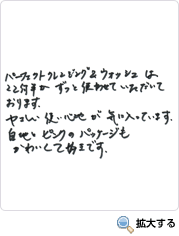 パーフェクトクレンジング&ウォッシュ は
22何年か ずっと 使わせて いただいて
おります。
やさしい 使い心地 が 気に入っています。
白地に ピンクの パッケージも
かわいくて 好きです。
拡大する